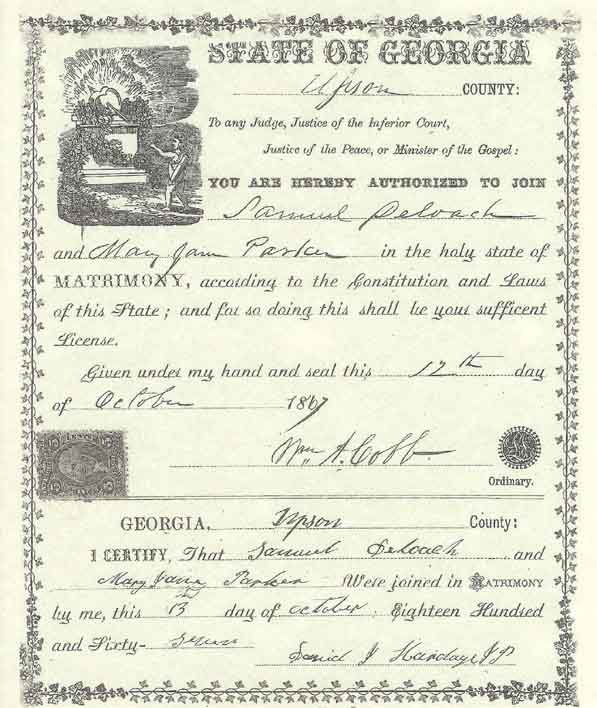 STATE OF GEORGIA
Upson COUNTY:
To any Judge, Justice of the Inferior Court,
Justice of the Peace, or Minister of the Gospel:
YOU ARE HEREBY AUTHORIZED TO JOIN
Samuel Deloach
and Mary Jane Parker in the holy state of
MATRIMONY, according to the Constitution and Laws
of this State; and for so doing this shall be your sufficent
License.
Given under my hand and seal this 12th day
of October 1867
Wm A. Cobb
Ordinary.
GEORGIA, Upson County:
I CERTIFY, That Samuel Deloach and
Mary Jane Parker Were joined in MATRIMONY
by me, this 13th day of October Eighteen Hundred
and Sixty-seven
J Hardaye JP